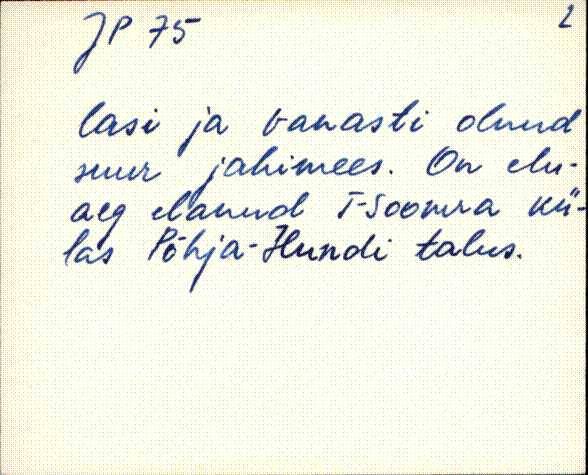 JP 75
2
lasi ja vanasti olnud
suur jahimees. On elu-
aeg elanud T-Soomra kü-
las Põhja-Hundi talus.